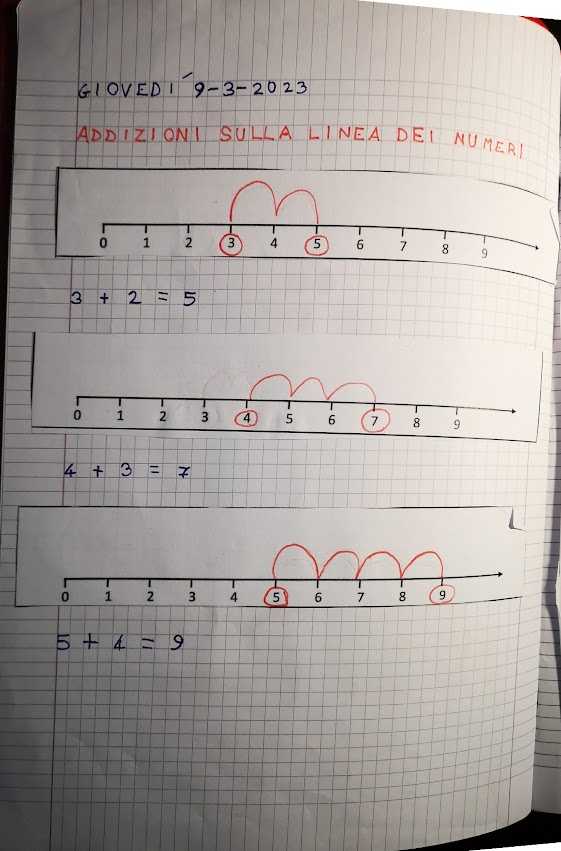 GIOVEDÌ 9-3-2023
ADDIZIONI SULLA LINEA DEI NUMERI
0 1 2 3 4 5 6 7 8 9
3 + 2 = 5
0 1 2 3 4 5 6 7 8 9
4 + 3 = 7
0 1 2 3 4 5 6 7 8 9
5 + 4 = 9